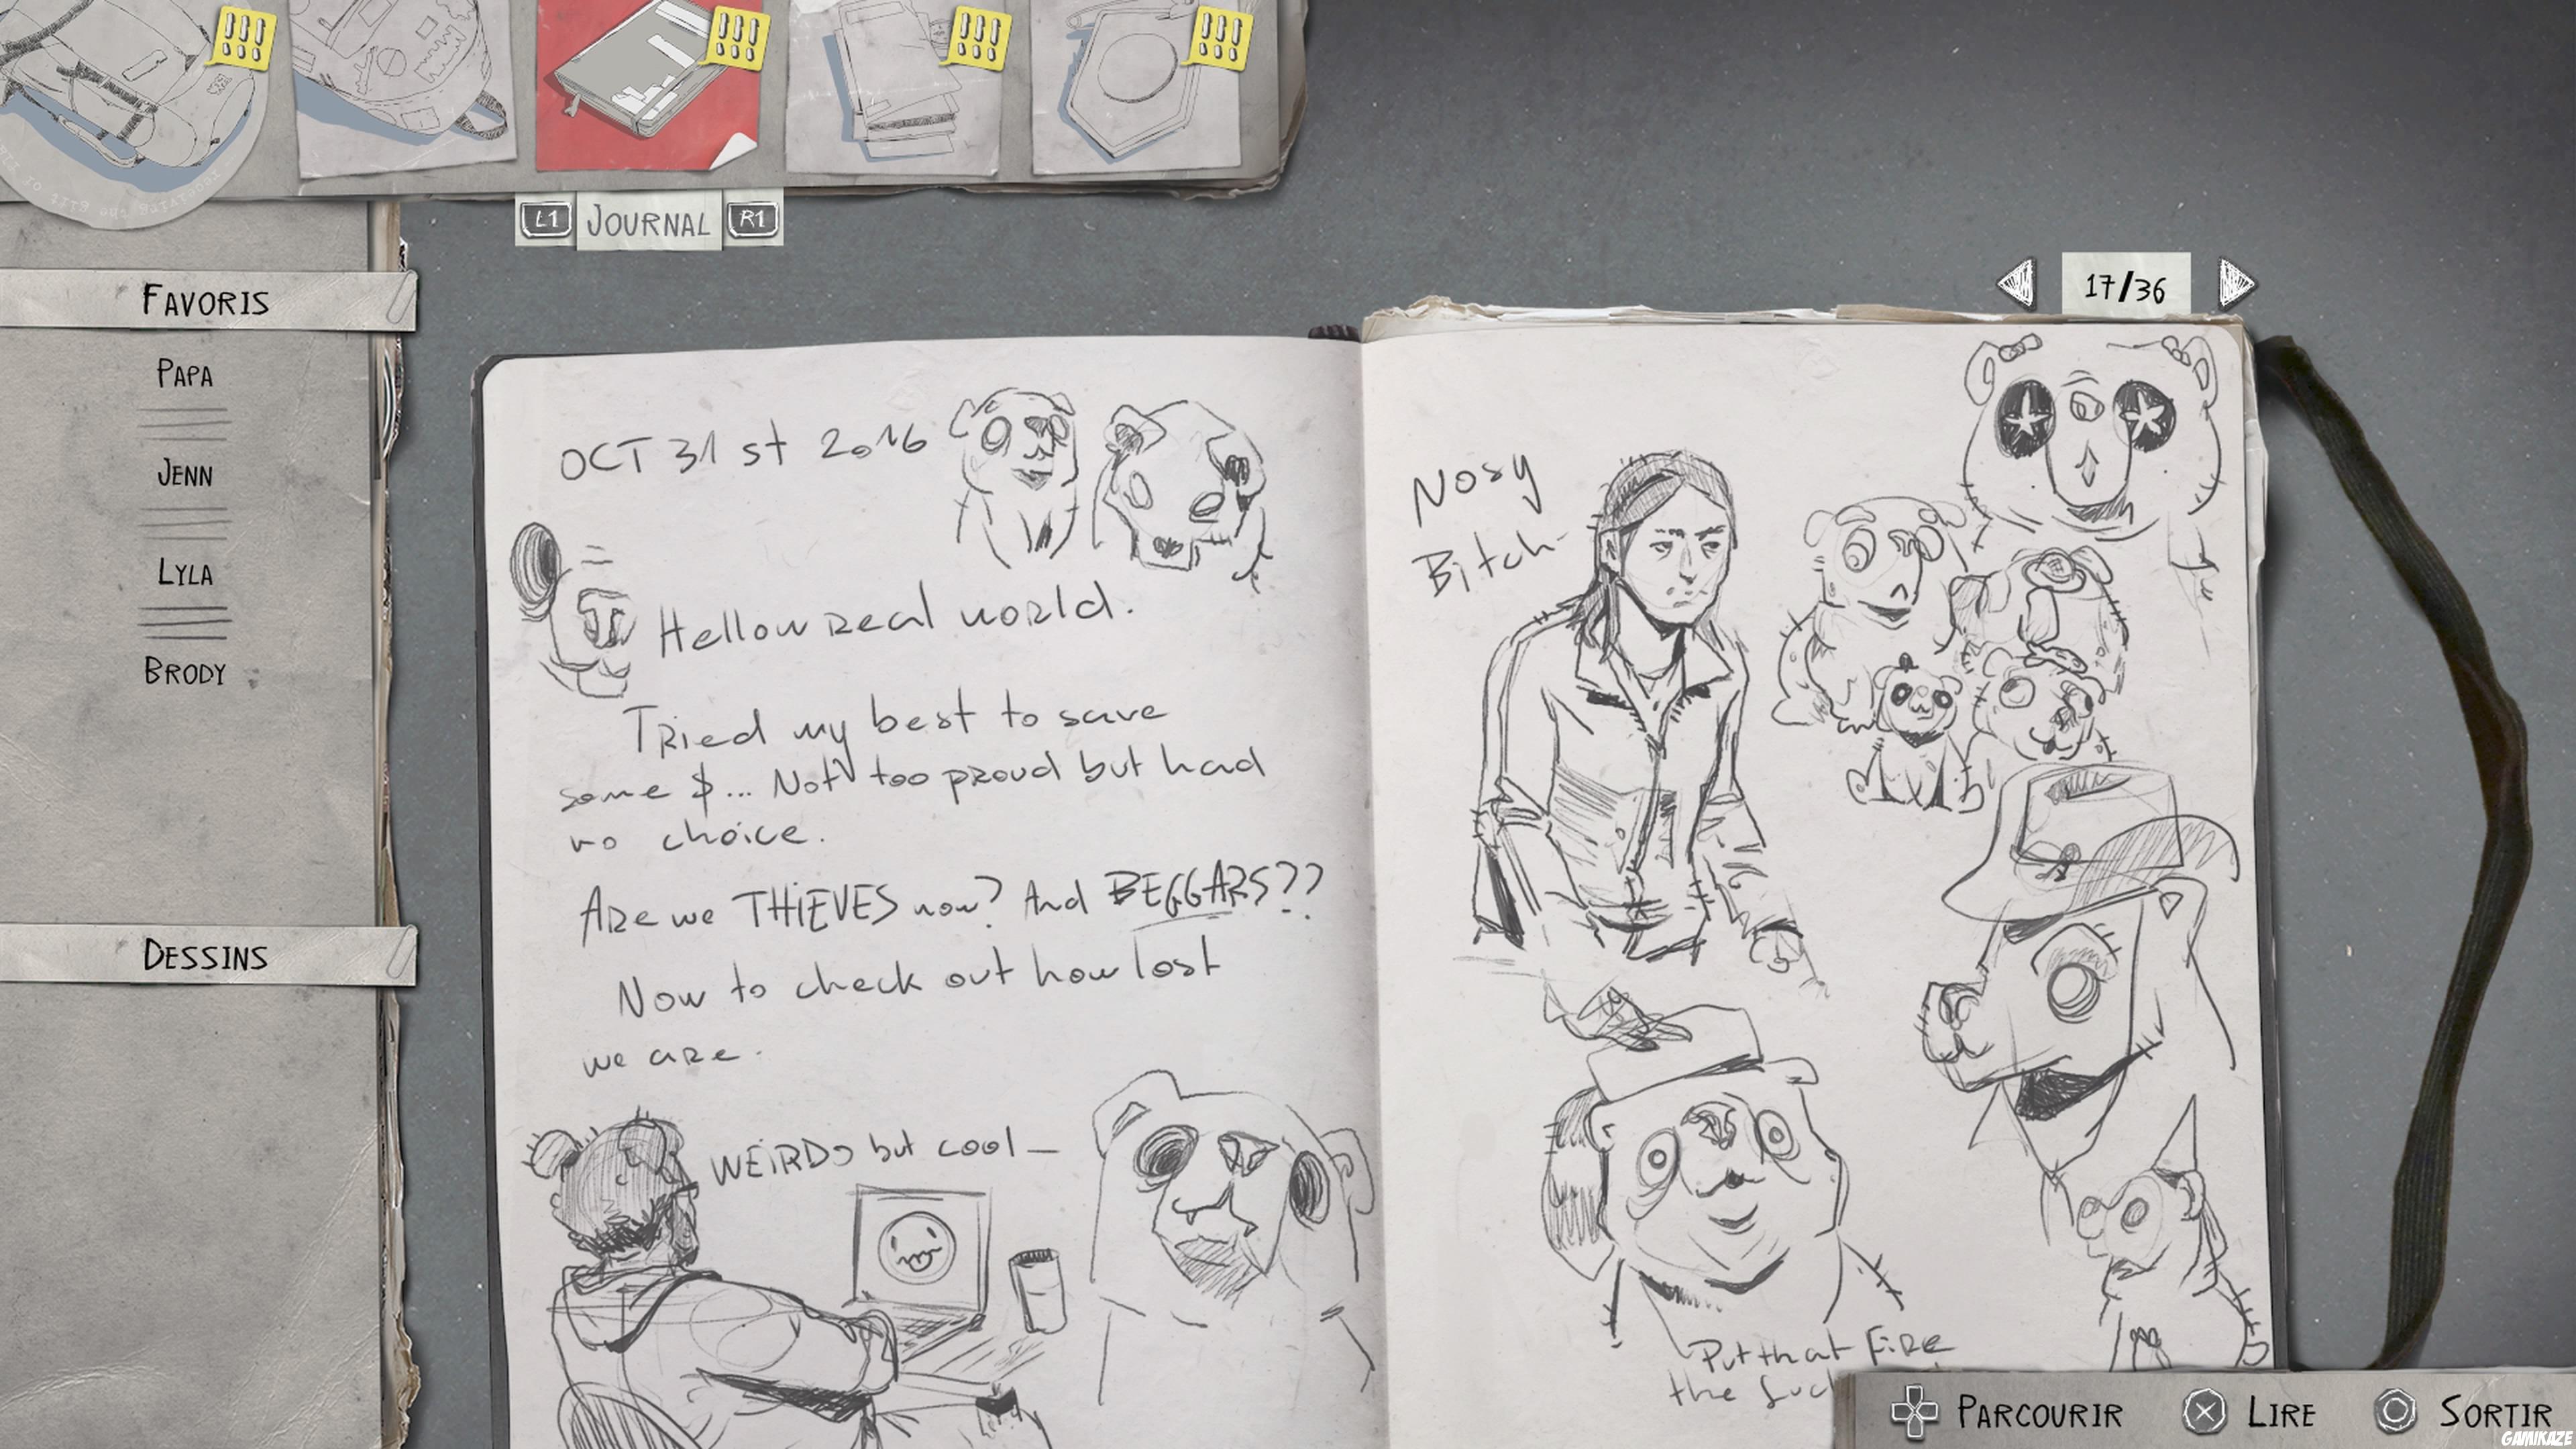 L1 JOURNAL R1
FAVORIS
PAPA
JENN
LYLA
BRODY
DESSINS
17/36
OCT 31 st 2016
Hellow real world.
Tried my best to save
some $... Not too proud but had
no choice.
Are we THiEVES now? And BEGGARS??
Now to check out how lost
we are.
WEiRDO but cool—
Nosy
Bitch-
Put that FiRE
the
PARCOURIR LIRE SORTIR
GAMIKAZE